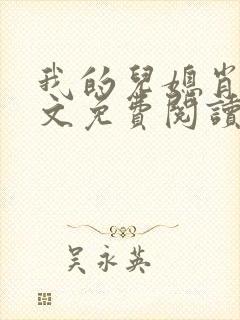 我的兒媳肖
文免費閱讀
吴永英